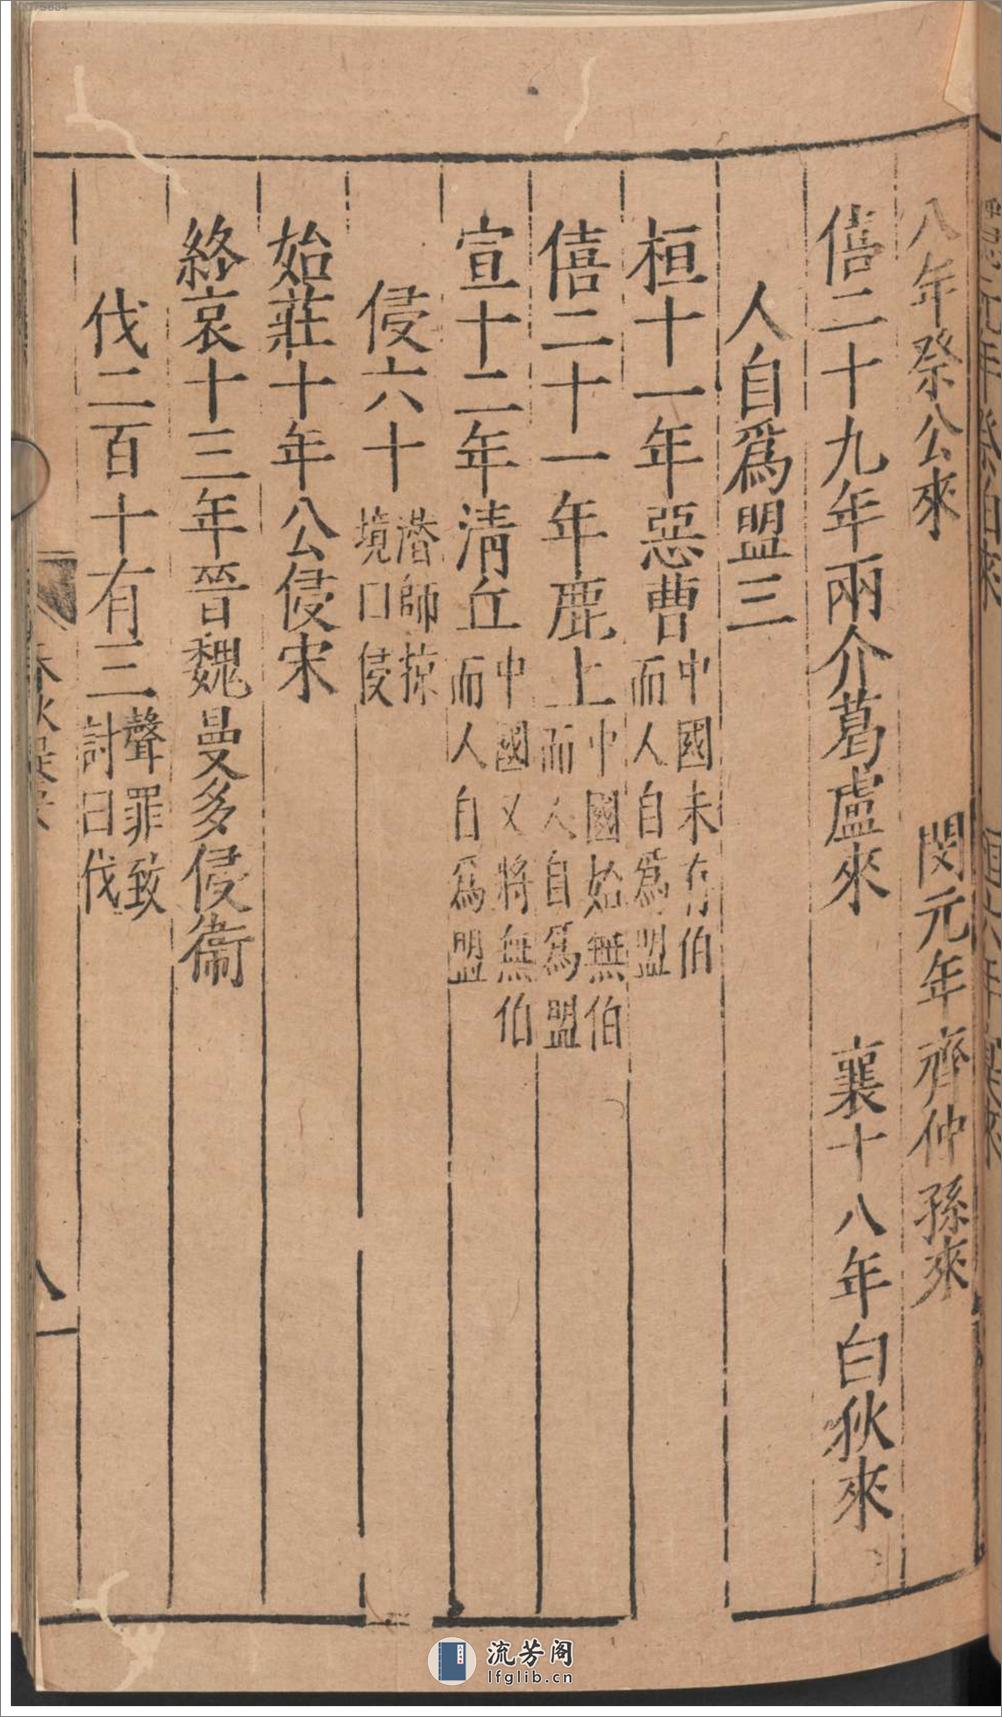 八年祭公來　閔元年齊仲孫來
僖二十九年兩介葛盧來　襄十八年白狄來
人自爲盟三
桓十一年惡曹中國未有伯而人自爲盟
僖二十一年鹿上中國始無伯而人自爲盟
宣十二年清丘中國又將無伯而人自爲盟
侵六十潛師掠境曰侵
始莊十年公侵宋
終哀十三年晉魏曼多侵衞
伐二百十有三聲罪致討曰伐
八
流芳阁
lfglib.cn